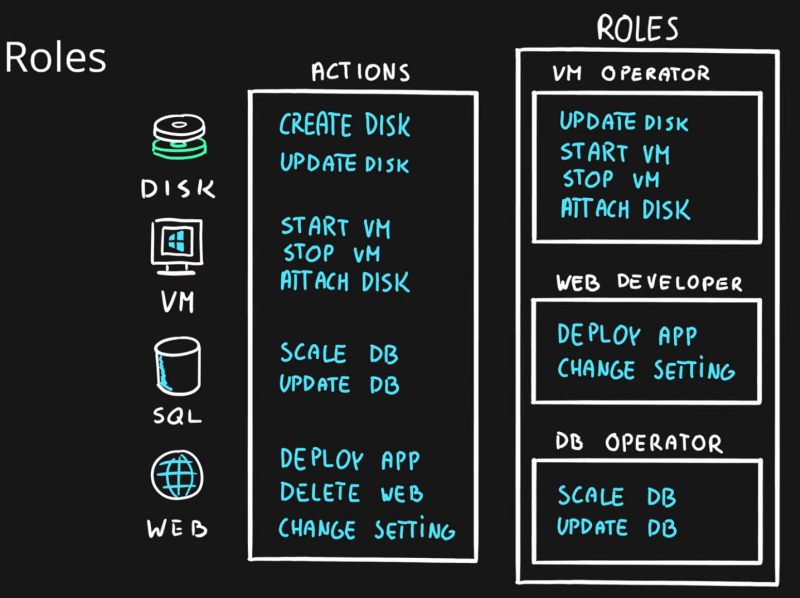 Roles
ACTIONS
DISK
CREATE DISK
UPDATE DISK
VM
START VM
STOP VM
ATTACH DISK
SQL
SCALE DB
UPDATE DB
WEB
DEPLOY APP
DELETE WEB
CHANGE SETTING
ROLES
VM OPERATOR
UPDATE DISK
START VM
STOP VM
ATTACH DISK
WEB DEVELOPER
DEPLOY APP
CHANGE SETTING
DB OPERATOR
SCALE DB
UPDATE DB